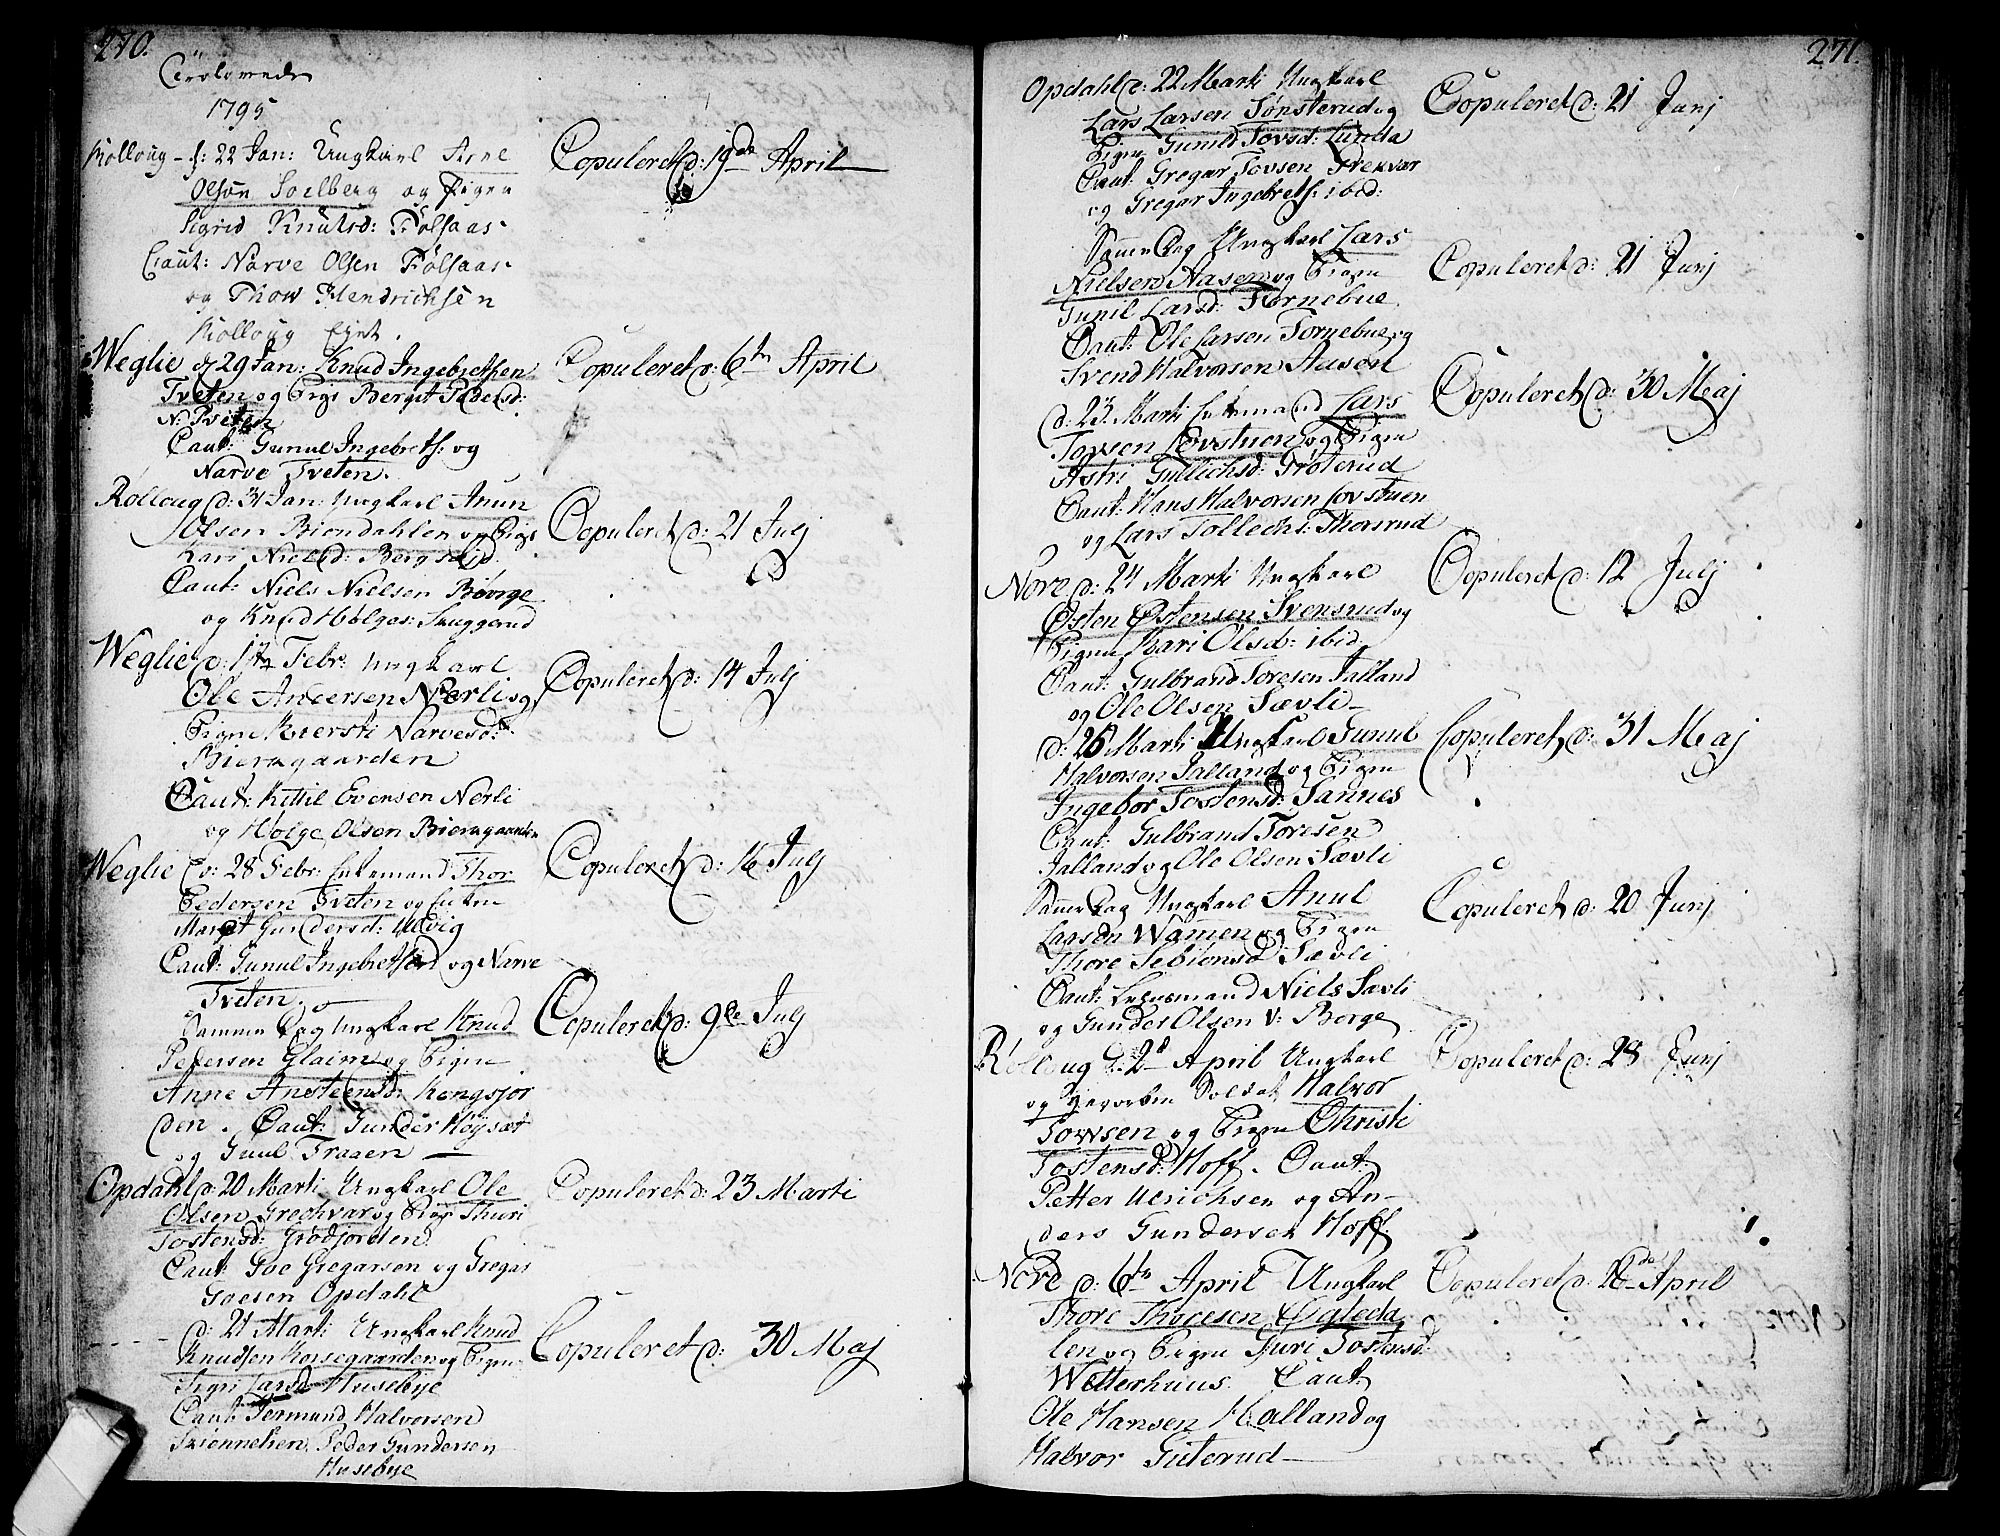 270.
Trolovede
1795
Rolloug - d: 22 Jan: Ungkarl Arne
Olsøn Soelberg og Pigen
Sigrid Knutsd: Følsaas
Caut: Narve Olsen Følsaas
og Thow Hendrichsen
Rolloug Eyet.
Copuleret d: 19de April
Weglie d 29 Jan: Knud Ingebretsen
Tveten og Pige Bergit Pedersd:
N: Tveten
Caut: Gunul Ingebrets: og
Narve Tveten.
Copuleret d: 6te April
Rolloug d: 31 Jan: Ungkarl Anun
Olsen Biøndahlen og Pige
Kari Nielsd: Bergslid
Caut: Niels Nielsen Børge
og Knud Helges: Skuggerud
Copuleret d: 21 Julj
Weglie d: 1te Febr: Ungkarl
Ole Andersen Nørli og
Pigen Kiersti Narvesd:
Bieragaarden
Caut: Kittil Evensen Nerli
og Helge Olsen Bieragaarden
Copuleret d: 14 Julj
Weglie d: 28 Febr: Enkemand Thor
Pedersen Tveten og Enken
Margit Gundersd: Ulvig
Caut: Gunul Ingebretsen og Narve
Tveten.
Copuleret d: 16 Julj
Samme Dag Ungkarl Knud
Pedersen Glaim og Pigen
Anne Ansteensd: Kongsjor
den. Caut: Gunder Høysæt
og Guul Traaen
Copuleret d: 9de Julj
Opdahl d: 20 Marti Ungkarl Ole
Olsen Grechvar og Pige Thuri
Tostensd: Grødjorden
Caut: Goe Gregarsen og Gregar
Goesen Opdahl
Copuleret d: 23 Marti
d: 21 Marti Ungkarl Knud
Knudsen Korsegaarden og Pigen
Sigri Larsd: Husebye
Caut: Germund Halvorsen
Skiønnehen, Peder Gundersen
Husebye
Copuleret d: 30 Maj
271.
Opdahl d: 22 Marti Ungkarl
Lars Larsen Sønsterud og
Pigen Gunild Tovsd: Lunda
Caut: Gregar Tovsen Grekvar
og Gregar Ingebrets: ibid:
Copuleret d: 21 Junj
Samme Dag Ungkarl Lars
Nielsen Aasen og Pigen
Gunil Larsd: Tornebue
Caut: Ole Larsen Tornebue og
Svend Halvorsen Aasen
Copuleret d: 21 Junj
d: 23 Marti Enkemand Lars
Tovsen Lovstuen og Pigen
Astri Gullichsd: Grøterud
Caut: Hans Halvorsen Lovstuen
og Lars Tollechs: Thorsrud
Copuleret d: 30 Maj
Nore d: 24 Marti Ungkarl
Østen Østensen Svensrud og
Pigen Kari Olsd: ibid.
Caut: Gulbrand Toresen Jalland
og Ole Olsen Sævli
Copuleret d: 12 Julj
d: 26 Marti Ungkarl Gunul
Halvorsen Jalland og Pigen
Ingebor Tostensd: Sannes
Caut: Gulbrand Toresen
Jalland og Ole Olsen Sævli
Copuleret d: 31 Maj
Samme Dag Ungkarl Anul
Larsen Wamen og Pigen
Thore Sebiønsd: Sævli
Caut: Lensmand Niels Sævli
og Gunder Olsen v: Borge
Copuleret d: 20 Junj
Rolloug d: 2d April Ungkarl
og geworben Soldat Halvor
Towsen og Pigen Christi
Tostensd: Hoff. Caut:
Petter Ulrichsen og An-
ders Gundersen Hoff.
Copuleret d: 28 Junj
Nore d: 6te April Ungkarl
Thore Thoresen Ygleda
len og Pigen Guri Tostensd:
Wetterhuus. Caut:
Ole Hansen Halland og
Halvor Guterud
Copuleret d: 18de April